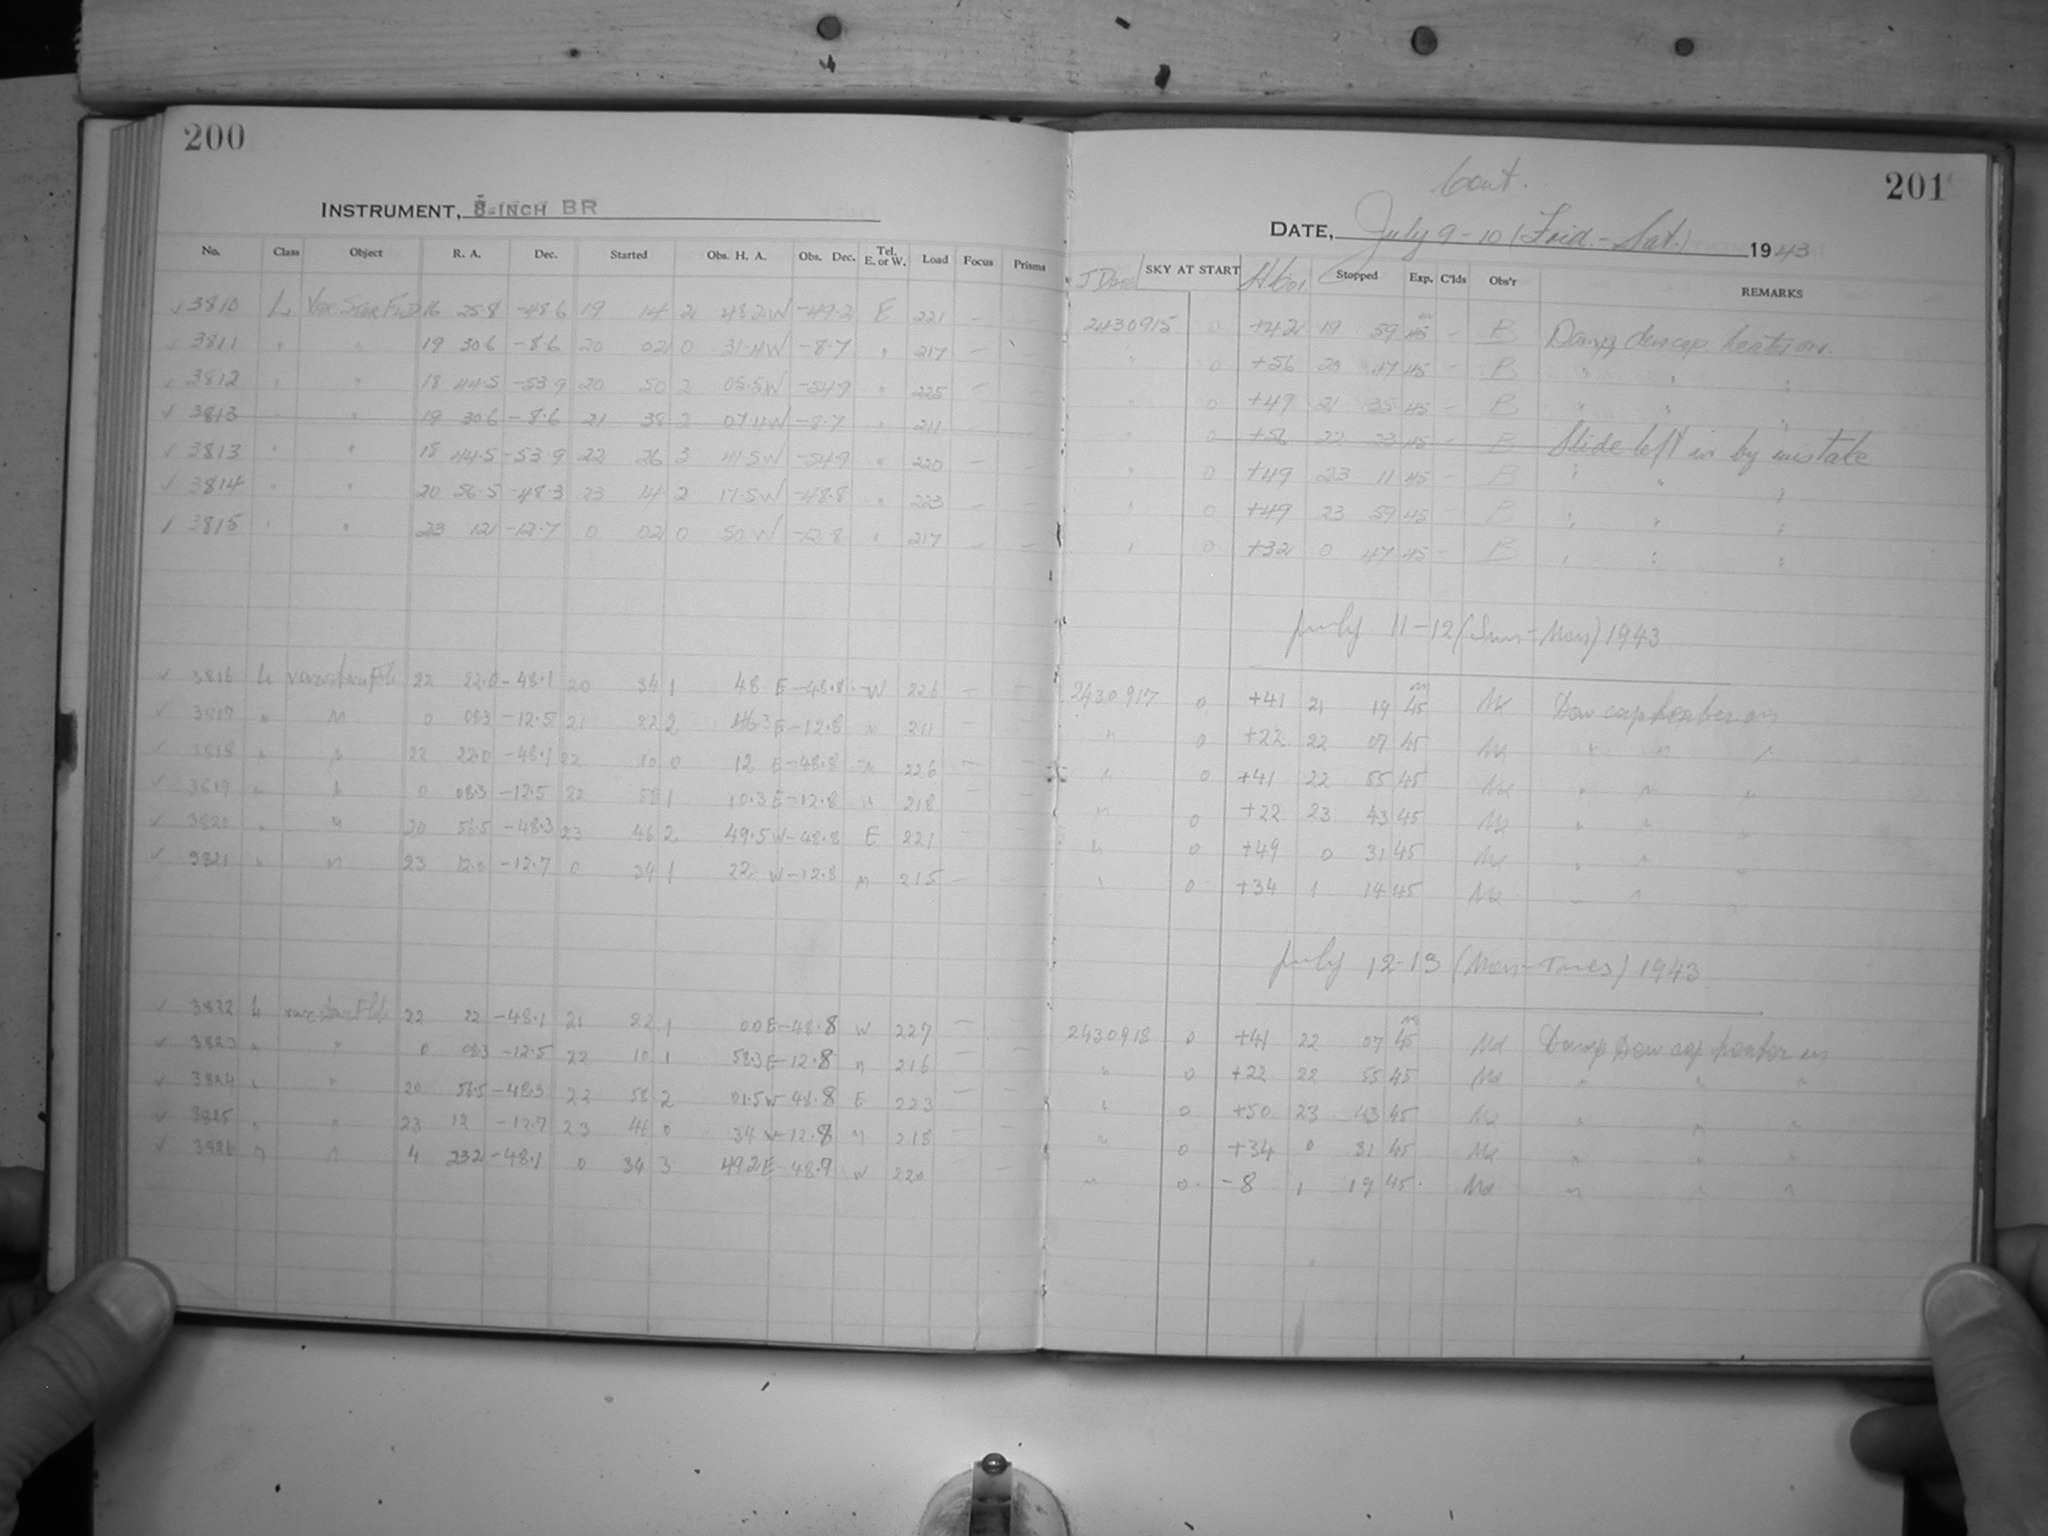 200
INSTRUMENT, 8-INCH BR
No. Class Object R. A. Dec. Started Obs. H. A. Obs. Dec. Tel. E. or W. Load Focus Prisms
3810 L Var Star Fld 16 25.8 -48.6 19 14 2 48.2W -49.2 E 221 - -
3811 " " 19 30.6 -8.6 20 02 0 31.4W -8.7 " 217 -
3812 " " 18 44.5 -53.9 20 50 2 05.5W -54.9 " 225 -
3813 " " 19 30.6 -8.6 21 38 2 07.4W -8.7 " 211 -
3813 " " 18 44.5 -53.9 22 26 3 41.5W -54.9 " 220 - -
3814 " " 20 56.5 -48.3 23 14 2 17.5W -48.8 " 223 - -
3815 " " 23 12 -12.7 0 02 0 50 W -12.8 " 217 - -
3816 L 22 22.0 -48.1 20 34 1 48 E -48.8 W 226 - -
3817 " " 0 08.3 -12.5 21 22 2 46.3E -12.8 " 211 - -
3818 " " 22 22.0 -48.1 22 10 0 12 E -48.8 " 226 - -
3819 " " 0 08.3 -12.5 22 58 1 10.3E -12.8 " 218 - -
3820 " " 20 56.5 -48.3 23 46 2 49.5W -48.8 E 221 - -
3821 " " 23 12.0 -12.7 0 34 1 22 W -12.8 " 215 - -
3822 L 22 22 -48.1 21 22 1 00E -48.8 W 227 - -
3823 " " 0 08.3 -12.5 22 10 1 58.3E -12.8 " 216 - -
3824 " " 20 56.5 -48.3 22 58 2 01.5W -48.8 E 223 - -
3825 " " 23 12 -12.7 23 46 0 34 W -12.8 " 218 - -
3826 " " 4 23.2 -48.1 0 34 3 49.2E -48.9 W 220 -
201
Cont.
DATE, July 9-10 (Frid.-Sat.) 1943
J Date SKY AT START Stopped Exp. C'lds Obs'r REMARKS
2430915 0 +42 19 59 45 - B Damp, dewcap heater on.
" 0 +56 20 47 45 - B " " "
" 0 +49 21 35 45 - B " " "
" 0 +56 22 23 45 - B Slide left in by mistake
" 0 +49 23 11 45 - B " " "
" 0 +49 23 59 45 - B " " "
" 0 +32 0 47 45 - B " " "
July 11-12 (Sun-Mon) 1943
2430917 0 +41 21 19 45 Dew cap heater on
" 0 +22 22 07 45 " " "
" 0 +41 22 55 45 " " "
" 0 +22 23 43 45 " " "
" 0 +49 0 31 45 " " "
" 0 +34 1 14 45 " " "
July 12-13 (Mon-Tues) 1943
2430918 0 +41 22 07 45 Damp Dew cap heater on
" 0 +22 22 55 45 " " "
" 0 +50 23 43 45 " " "
" 0 +34 0 31 45 " " "
" 0 -8 1 19 45 " " "